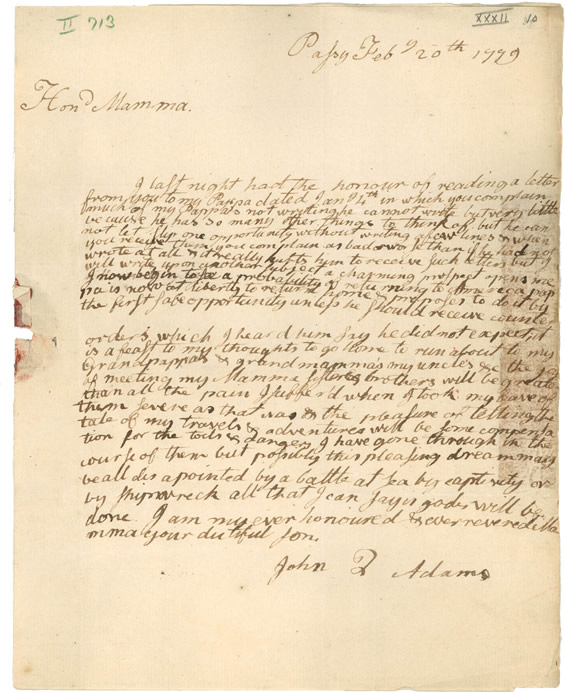 II 713
XXXII 10
Passy Feby 20th 1779
Hond Mamma.
I last night had the honour of reading a letter
from you to my Pappa dated Jany 4th in which you complain
much of my Pappa's not writing he cannot write but very little
because he has so many other things to think of, but he can
not let slip one opportunity without writing a few lines & when
you receive them you complain as bad or worse than if he had not
wrote at all & it really hurts him to receive such letters but I
will write upon another subject
I now begin to see a probability of returning to America pap
pa is now at liberty to return home & proposes to do it by
the first safe opportunity unless he should receive counter
orders which I heard him say he did not expect, it
is a feast to my thoughts to go home to run about to my
Grandpappas & grandmammas my uncles &c the joy
of meeting my Mamma sister & brothers will be greater
than all the pain I sufferd when I took my leave of
them severe as that was & the pleasure of telling the
tale of my travels & adventures will be some compensa
tion for the toils & dangers I have gone through in the
course of them but possibly this pleasing dream may
be all disapointed by a battle at sea by captivity or
by shipwreck all that I can say is gods will be
done. I am my ever honoured & ever revered Ma
mma your dutiful son.
John Q Adams